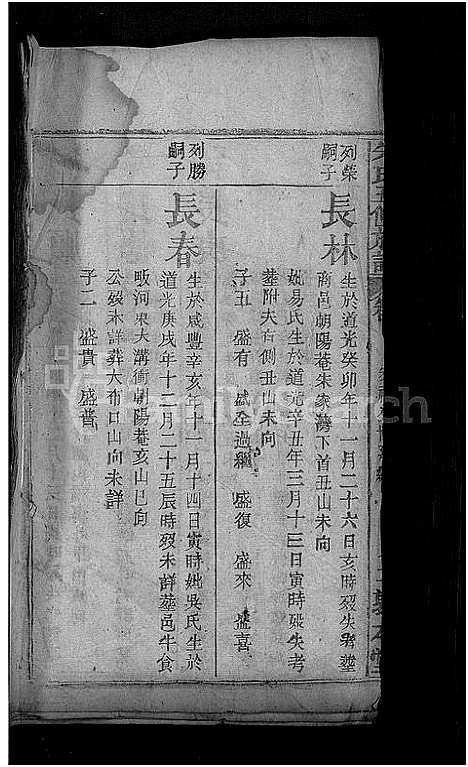 列榮
嗣子
長林
生於道光癸卯年十一月二十六日亥時歿失考塋
商邑朝陽菴朱家灣下首丑山未向
妣易氏生於道光辛丑年三月十三日寅時歿失考
塋附夫右側丑山未向
子五 盛有 盛全過繼 盛復 盛來 盛喜
列勝
嗣子
長春
生於咸豐辛亥年十一月十四日寅時妣吳氏生於
道光庚戌年十二月二十五辰時歿未詳塋邑牛食
畈河東大溝衝朝陽菴亥山巳向
公歿未詳葬大布口山向未詳
子二 盛貴 盛普